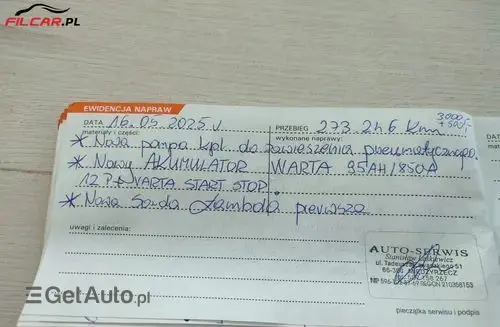 FILCAR.PL
EWIDENCJA NAPRAW
DATA 16.05 2025 r. PRZEBIEG 273 246 Km 3000,-
+500,-
materiały i części: wykonane naprawy:
* Nowa pompa kpl. do zawieszenia pneumatycznego.
* Nowy AKUMULATOR WARTA 95AH/850A
12 V WARTA START STOP.
* Nowa Sonda Lambda pierwsza
uwagi i zalecenia:
AUTO-SERWIS
Stanisław
ul. Tadeusza 51
MIĘDZYRZECZ
NIP 596- REGON 210368153
pieczątka serwisu i podpis
GetAuto.pl